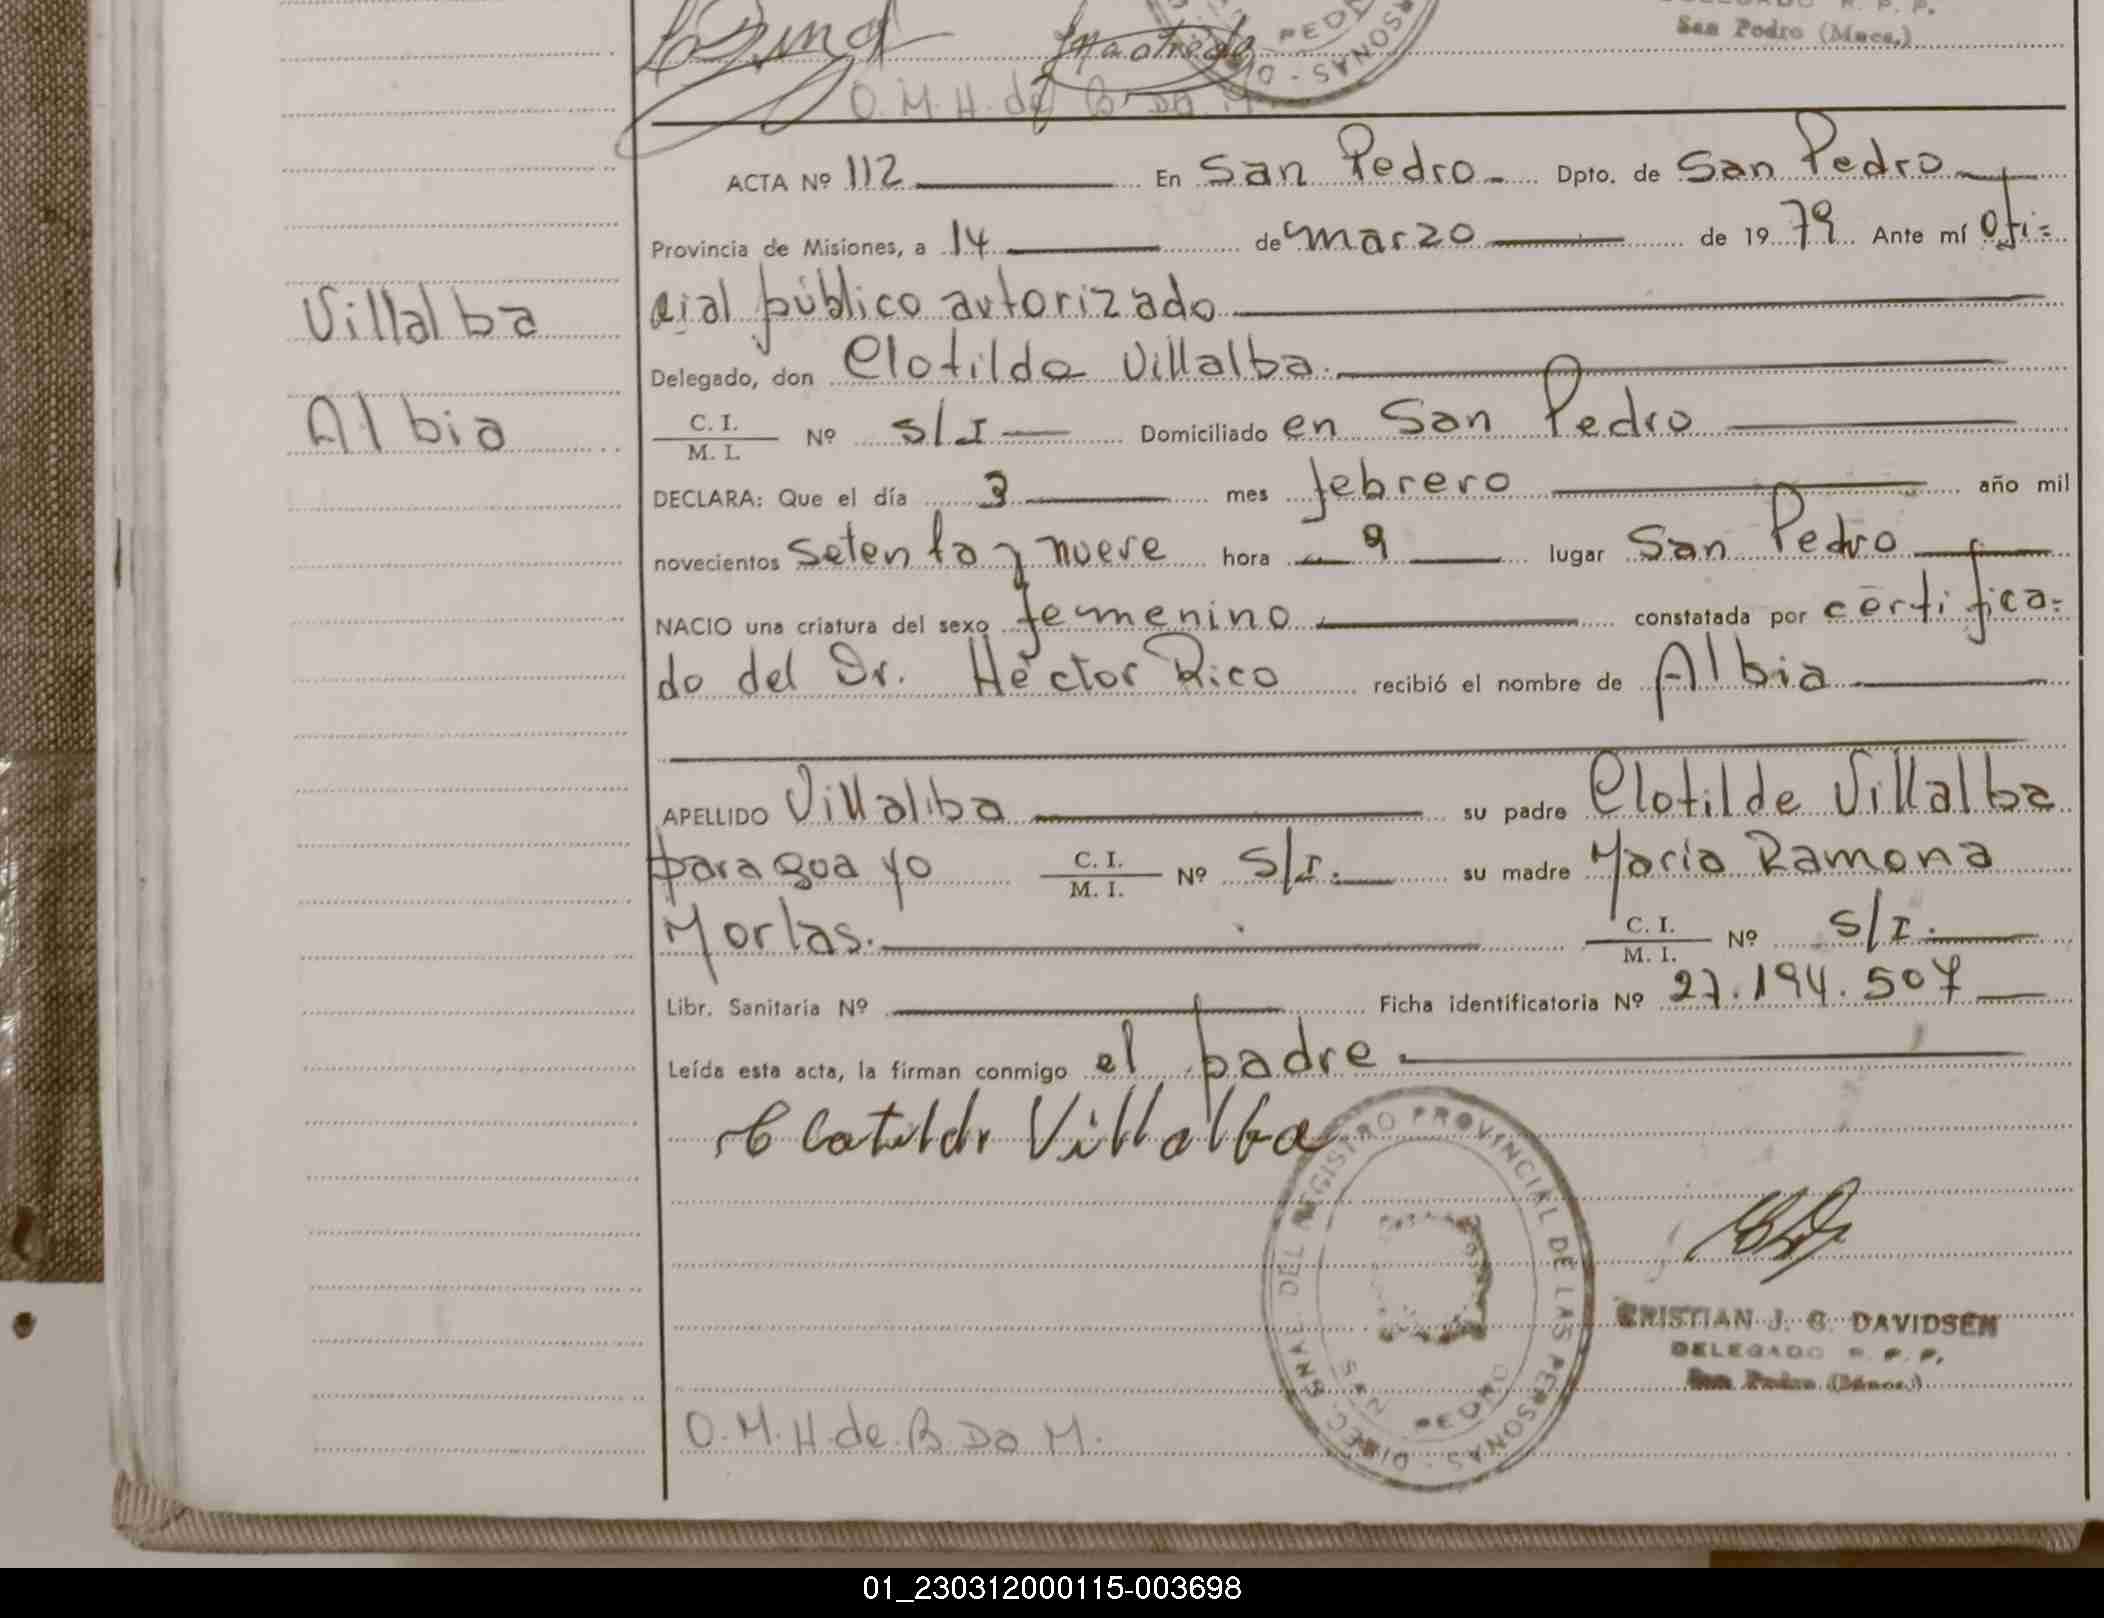 San Pedro (Mnes.)
O. M. H. de B. Do M.
ACTA Nº 112 En San Pedro Dpto. de San Pedro
Provincia de Misiones, a 14 de marzo de 1979 Ante mí Ofi=
Villalba
cial público autorizado
Delegado, don Clotilde Villalba.
Albia
C. I. / M. I. Nº s/I Domiciliado en San Pedro
DECLARA: Que el día 3 mes febrero año mil
novecientos setenta y nueve hora 9 lugar San Pedro
NACIO una criatura del sexo femenino constatada por certifica=
do del Dr. Héctor Rico recibió el nombre de Albia
APELLIDO Villalba su padre Clotilde Villalba
paraguayo C. I. / M. I. Nº S/I. su madre María Ramona
Morlas. C. I. / M. I. Nº S/I.
Libr. Sanitaria Nº Ficha identificatoria Nº 27.194.507
Leída esta acta, la firman conmigo el padre
Clotilde Villalba
DIREC. GRAL. DEL REGISTRO PROVINCIAL DE LAS PERSONAS
SAN PEDRO
CRISTIAN J. G. DAVIDSEN
DELEGADO R. P. P.
San Pedro (Mnes.)
O. M. H. de B. Do M.
01_230312000115-003698